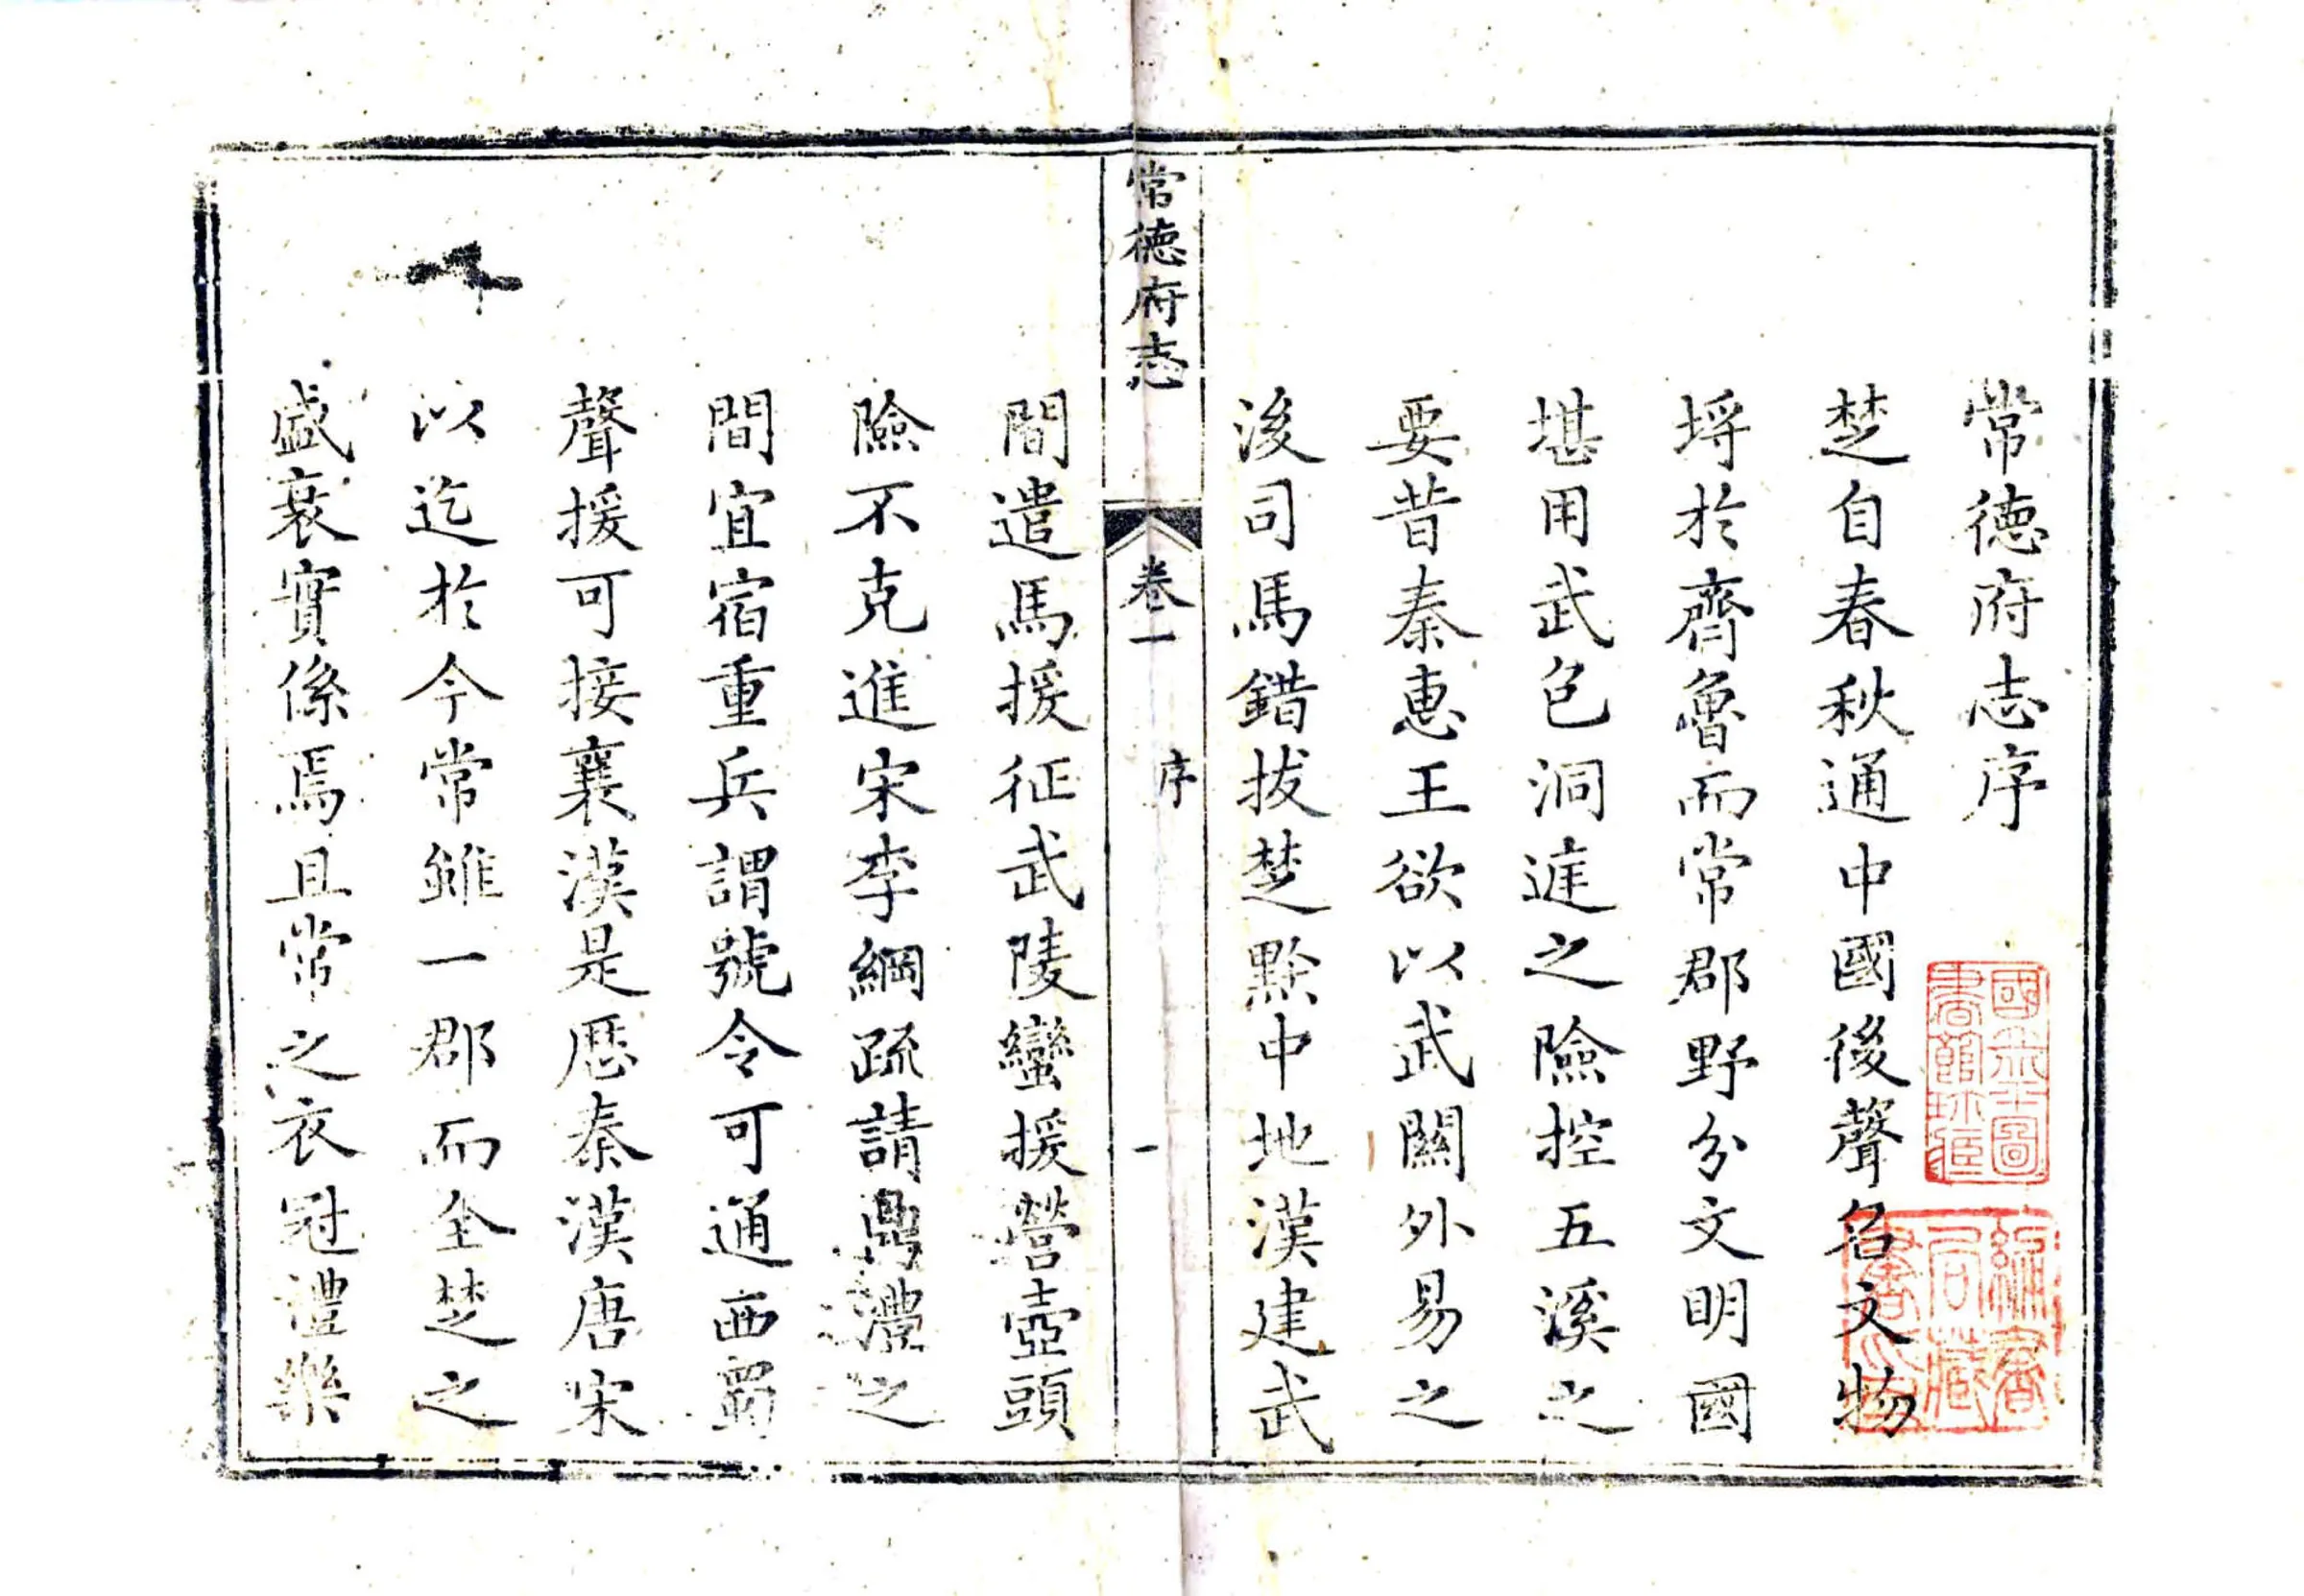 常德府志序
楚自春秋通中國後聲名文物
埒於齊魯而常郡野分文明國
堪用武包洞進之險控五溪之
要昔秦惠王欲以武關外易之
後司馬錯拔楚黔中地漢建武
常德府志
卷一
序
一
間遣馬援征武陵蠻援營壺頭
險不克進宋李綱疏請鼎澧之
間宜宿重兵謂號令可通西蜀
聲援可接襄漢是歷秦漢唐宋
以迄於今常雖一郡而全楚之
盛衰實係焉且常之衣冠禮樂
國立北平圖書館珍藏